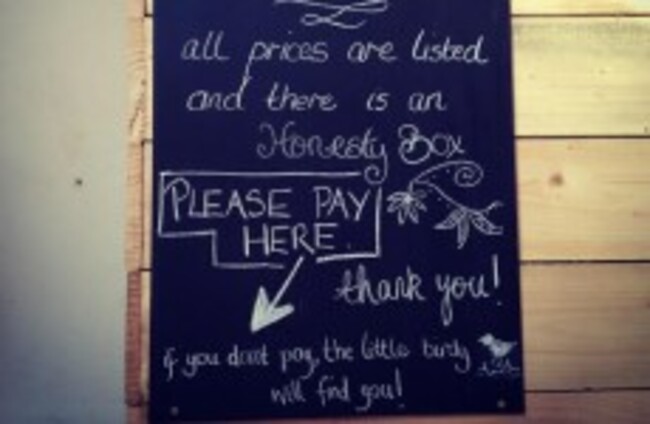 all prices are listed
and there is an
Honesty Box
PLEASE PAY
HERE.
thank you!
if you dont pay, the little birdy
will find you!